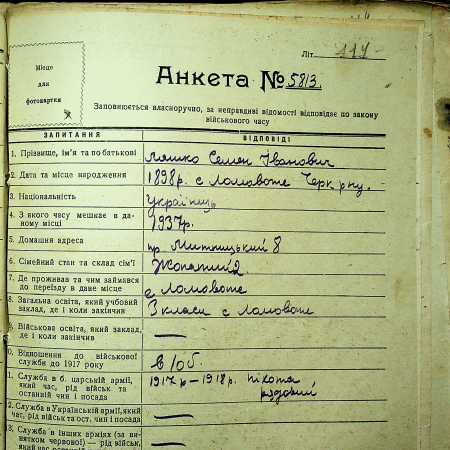 Літ. 117
Місце
для
фотокартки
Анкета № 5813.
Заповнюється власноручно, за неправдиві відомості відповідає по закону
військового часу
ЗАПИТАННЯ
ВІДПОВІДІ
1. Прізвище, ім'я та по батькові
Ляшко Семен Іванович
2. Дата та місце народження
1898р. с Ломовате Черк р-ну.
3. Національність
Українець
4. З якого часу мешкає в да-
ному місці
1937р.
5. Домашня адреса
пр. Митницький 8
6. Сімейний стан та склад сім'ї
Жонатий 2.
7. Де проживав та чим займався
до переїзду в дане місце
с Ломовате
8. Загальна освіта, який учбовий
заклад, де і коли закінчив
3 класи с Ломовате
9. Військова освіта, який заклад,
де і коли закінчив
0. Відношення до військової
служби до 1917 року
в/об.
1. Служба в б. царській армії,
який час, рід військ та
останній чин і посада
1917р – 1918р. піхота
рядовий
2. Служба в Українській армії, який
час, рід військ та ост. чин і посада
3. Служба в інших арміях (за ви-
нятком червоної) — рід військ,